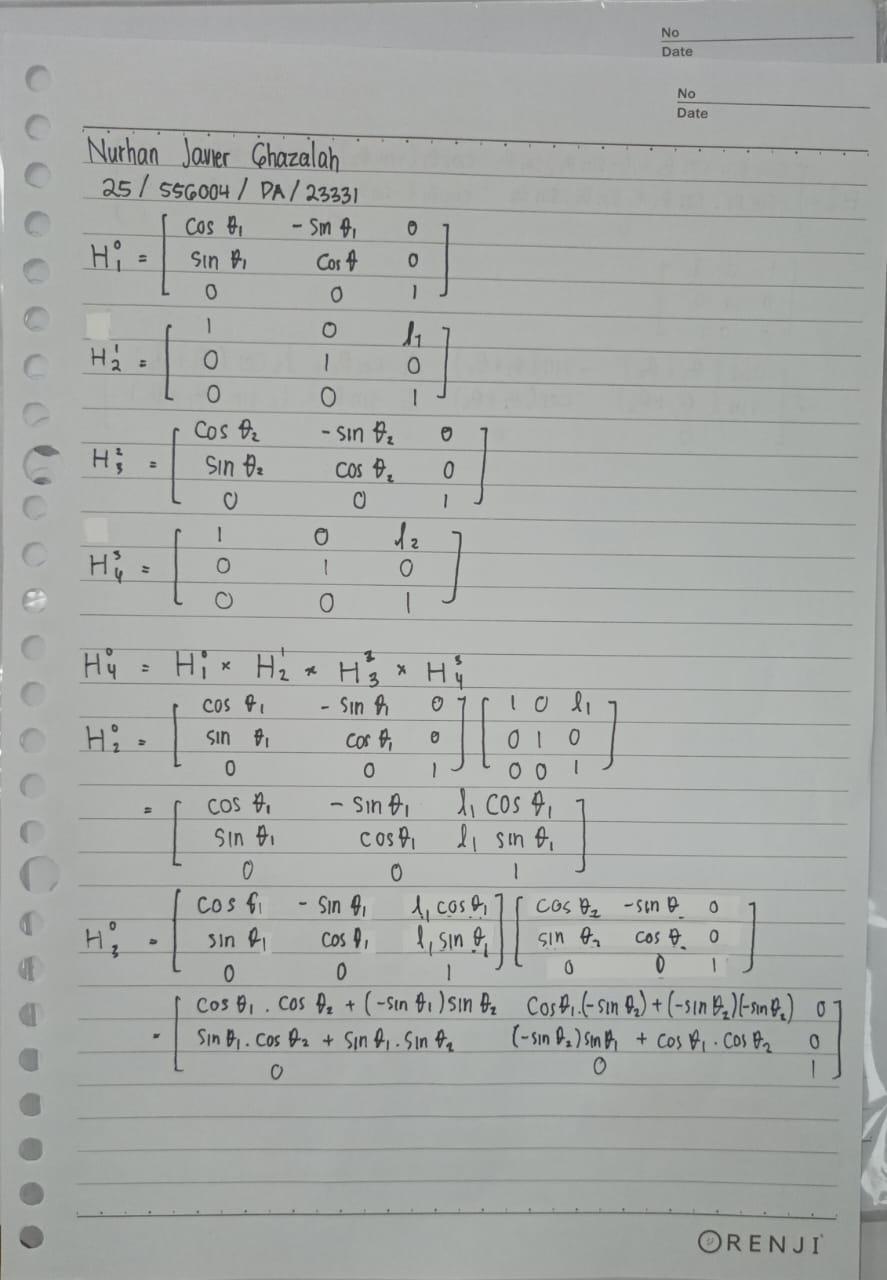 No
Date
No
Date
Nurhan Javier Ghazalah
25/556004/PA/23331
H⁰₁ = [ cos θ₁ - sin θ₁ 0
sin θ₁ cos θ 0
0 0 1 ]
H¹₂ = [ 1 0 l₁
0 1 0
0 0 1 ]
H²₃ = [ cos θ₂ - sin θ₂ 0
sin θ₂ cos θ₂ 0
0 0 1 ]
H³₄ = [ 1 0 l₂
0 1 0
0 0 1 ]
H⁰₄ = H⁰₁ × H¹₂ × H²₃ × H³₄
H⁰₂ = [ cos θ₁ - sin θ₁ 0 ] [ 1 0 l₁ ]
sin θ₁ cos θ₁ 0 0 1 0
0 0 1 0 0 1
= [ cos θ₁ - sin θ₁ l₁ cos θ₁
sin θ₁ cos θ₁ l₁ sin θ₁
0 0 1 ]
H⁰₃ = [ cos θ₁ - sin θ₁ l₁ cos θ₁ ] [ cos θ₂ -sin θ 0 ]
sin θ₁ cos θ₁ l₁ sin θ₁ sin θ₂ cos θ 0
0 0 1 0 0 1
= [ cos θ₁ . cos θ₂ + (-sin θ₁) sin θ₂ cos θ₁.(-sin θ₂) + (-sin θ₂)(-sin θ₂) 0
sin θ₁ . cos θ₂ + sin θ₁ . sin θ₂ (-sin θ₂) sin θ₁ + cos θ₁ . cos θ₂ 0
0 0 1 ]
ORENJI